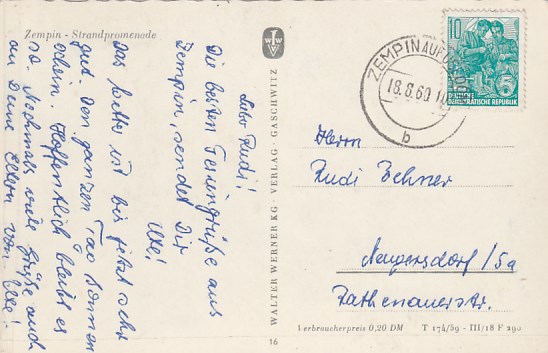 Zempin - Strandpromenade
Lieber Rudi!
Die besten Feriengrüße aus
Zempin, sendet Dir
Ute!
Das Wetter ist bis jetzt sehr
gut. Den ganzen Tag Sonnen
schein. Hoffentlich bleibt es
so. Nochmals viele Grüße auch
an Deine Eltern von Ute!
WALTER WERNER KG · VERLAG · GASCHWITZ
16
ZEMPIN AUF USEDOM
18.8.60
b
10
5
DEUTSCHE
DEMOKRATISCHE REPUBLIK
Herrn
Rudi Zehner
Neugersdorf/Sa
Rathenauerstr.
Verbraucherpreis 0,20 DM T 174/59 - III/18 F 290